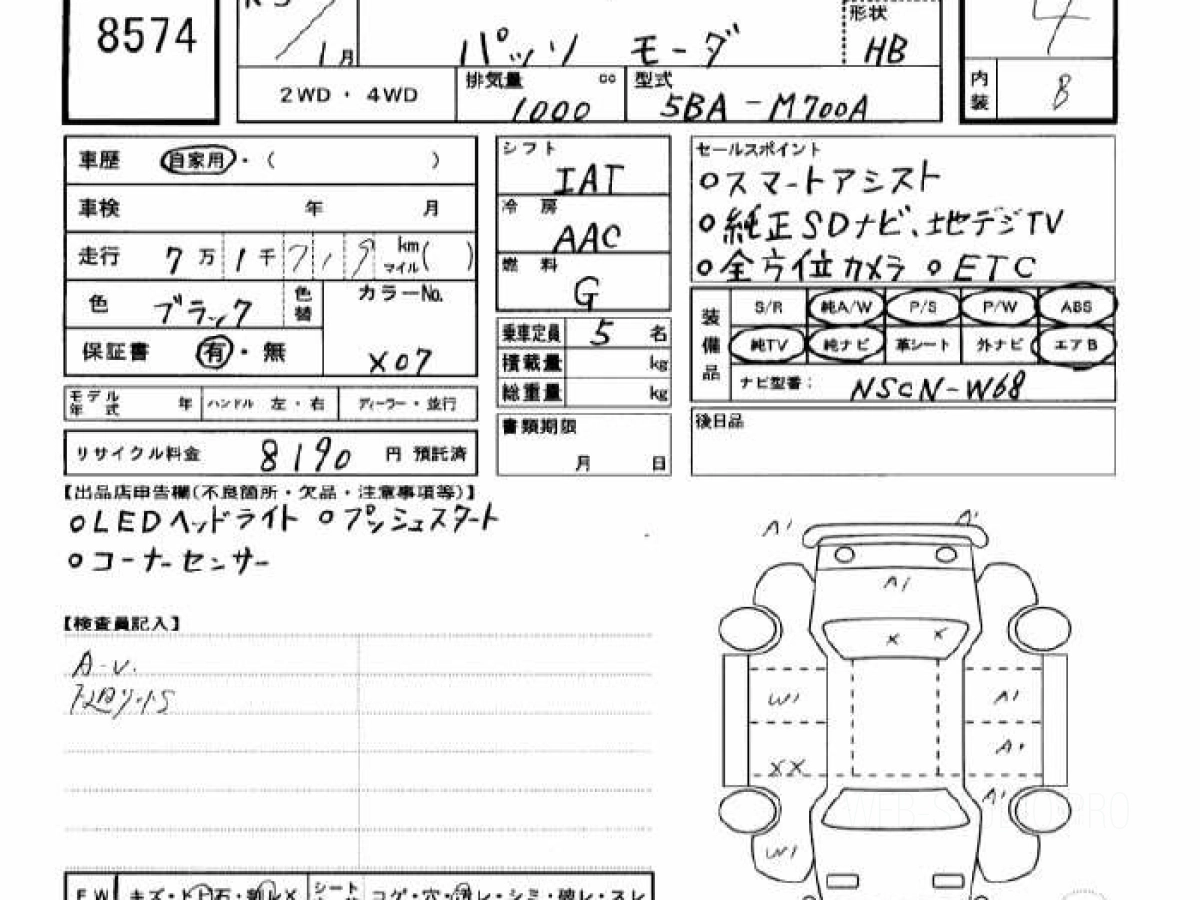 8574
1月
パッソ モーダ
形状
HB
4
2WD・4WD
排気量 cc
1000
型式
5BA-M700A
内装 8
車歴 自家用・( )
車検 年 月
走行 7万1千719 km マイル( )
色 ブラック 色替
カラーNo.
X07
保証書 有・無
モデル年式 年 ハンドル 左・右 ディーラー・並行
リサイクル料金 8190 円 預託済
シフト
IAT
冷房
AAC
燃料
G
乗車定員 5 名
積載量 kg
総重量 kg
書類期限
月 日
セールスポイント
○スマートアシスト
○純正SDナビ、地デジTV
○全方位カメラ ○ETC
装備品
S/R 純A/W P/S P/W ABS
純TV 純ナビ 革シート 外ナビ エアB
ナビ型番: NSCN-W68
後日品
【出品店申告欄(不良箇所・欠品・注意事項等)】
○LEDヘッドライト ○プッシュスタート
○コーナーセンサー
【検査員記入】
A-U.
A1
A1
A1
X X
W1
A1
XX
A1
W1
FW キズ・トビ石・割レX シート コゲ・穴・汚レ・シミ・破レ・スレ